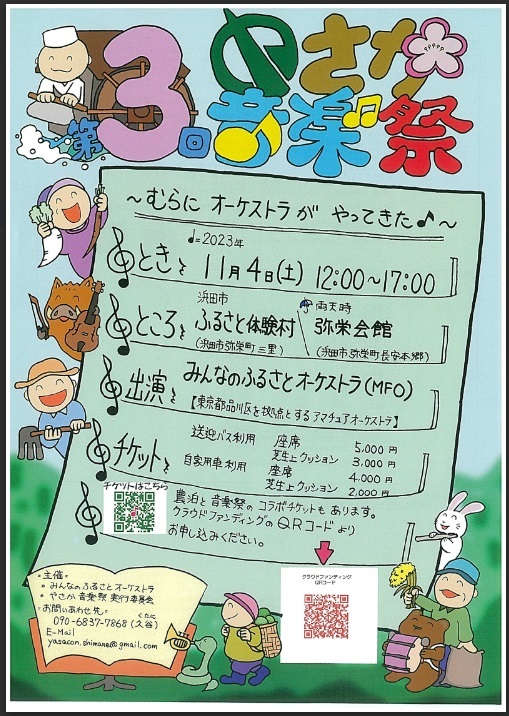 第3回 やさか音楽祭
～むらに オーケストラが やってきた♪～
♩=2023年
ときを 11月4日(土) 12:00～17:00
浜田市 雨天時
ところを ふるさと体験村 弥栄会館
(浜田市弥栄町三里) (浜田市弥栄町長安本郷)
出演を みんなのふるさとオーケストラ(MFO)
【東京都品川区を拠点とするアマチュアオーケストラ】
チケットを
送迎バス利用 座席 5,000円
芝生上クッション 3,000円
自家用車利用 座席 4,000円
芝生上クッション 2,000円
チケットはこちら
農泊と音楽祭のコラボチケットもあります。
クラウドファンディングのQRコードより
お申し込みください。
クラウドファンディング
QRコード
・主催・
みんなのふるさとオーケストラ
やさか音楽祭実行委員会
・お問いあわせ先・
くたに
090-6837-7868(久谷)
E-Mail
yasacon.shimane@gmail.com